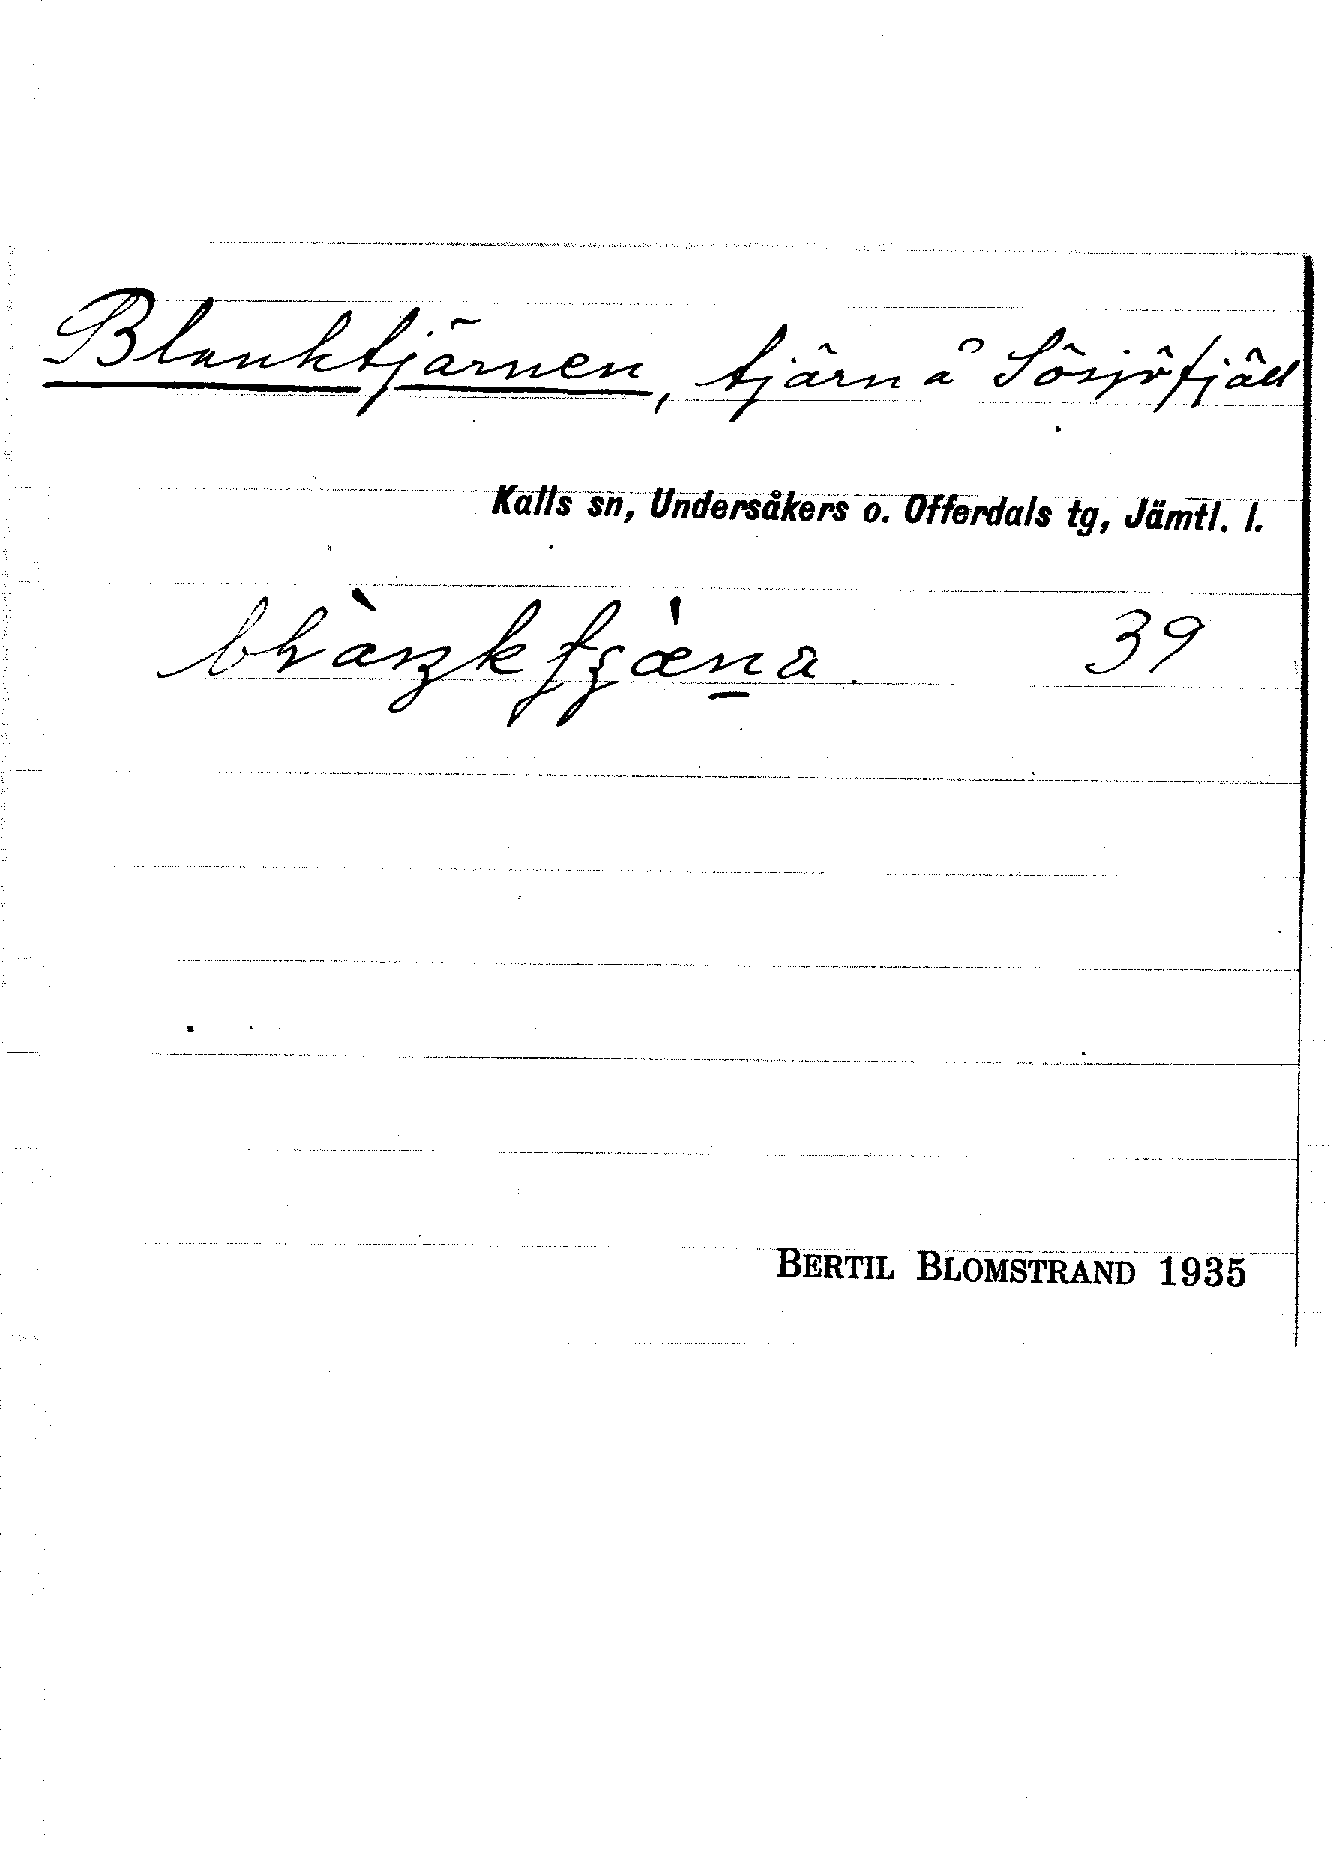 Blanktjärnen, tjärn å Sösjöfjäll
Kalls sn, Undersåkers o. Offerdals tg, Jämtl. l.
39
BERTIL BLOMSTRAND 1935